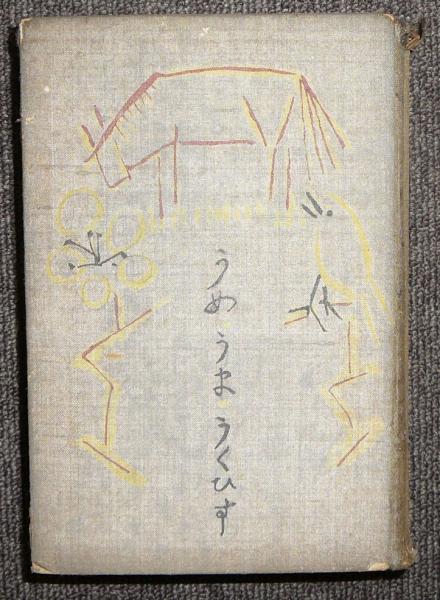 うめ・うま・うくひす